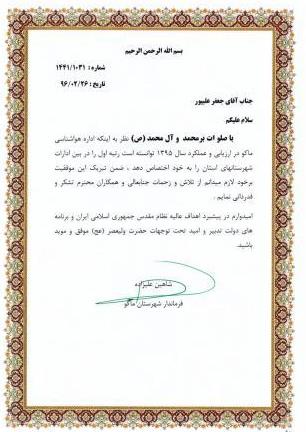 بسم الله الرحمن الرحیم
شماره : ۱۴۴۱/۱۰۳۱
تاریخ : ۹۶/۰۲/۲۶
جناب آقای جعفر علیپور
سلام علیکم
با صلوات بر محمد و آل محمد (ص) نظر به اینکه اداره هواشناسی
ماکو در ارزیابی و عملکرد سال ۱۳۹۵ توانسته است رتبه اول را در بین ادارات
شهرستانهای استان را به خود اختصاص دهد ، ضمن تبریک این موفقیت
برخود لازم میدانم از تلاش و زحمات جنابعالی و همکاران محترم تشکر و
قدردانی نمایم .
امیدوارم در پیشبرد اهداف عالیه نظام مقدس جمهوری اسلامی ایران و برنامه
های دولت تدبیر و امید تحت توجهات حضرت ولیعصر (عج) موفق و موید
باشید.
شاهین علیزاده
فرماندار شهرستان ماکو